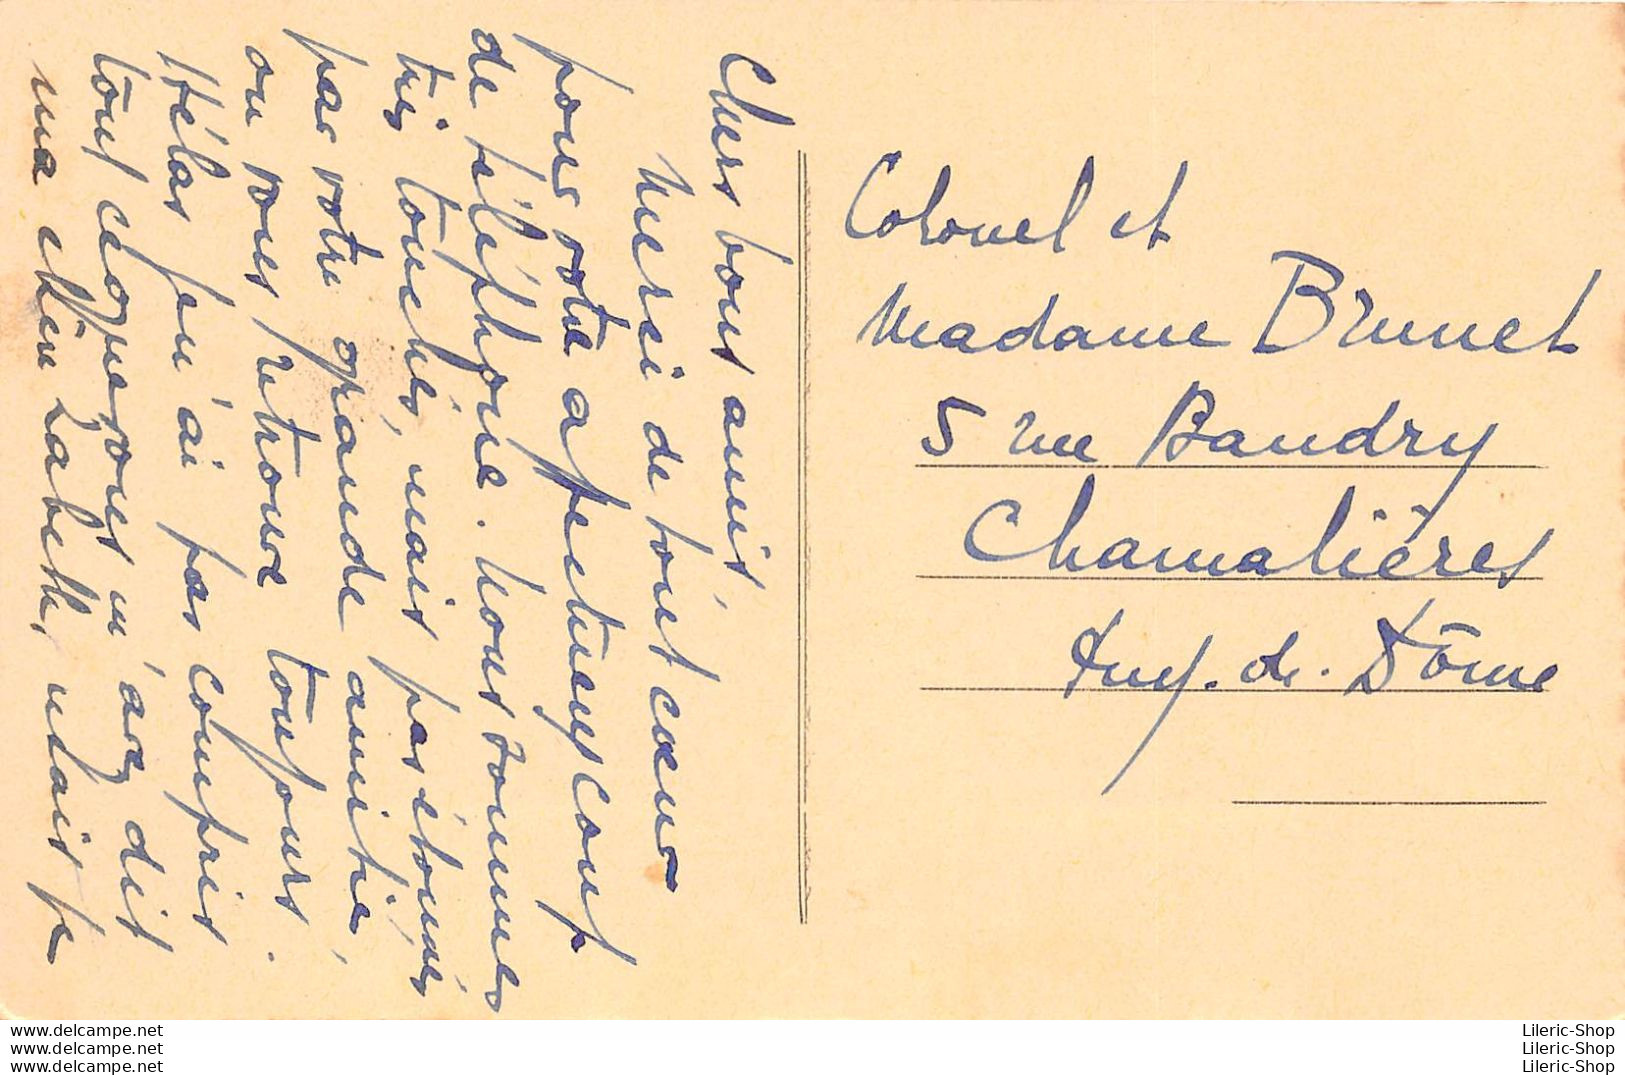 Chers bons amis,
Merci de tout cœur
pour votre affectueux coup
de téléphone. Nous sommes
très touchés, mais pas étonnés
par votre grande amitié,
on vous retrouve toujours.
Hélas je n'ai pas compris
tout ce que vous m'avez dit
ma chère Zabeth, mais je
Colonel et
Madame Brunet
5 rue Baudry
Chamalières
Puy. de. Dôme
www.delcampe.net
www.delcampe.net
www.delcampe.net
Lileric-Shop
Lileric-Shop
Lileric-Shop